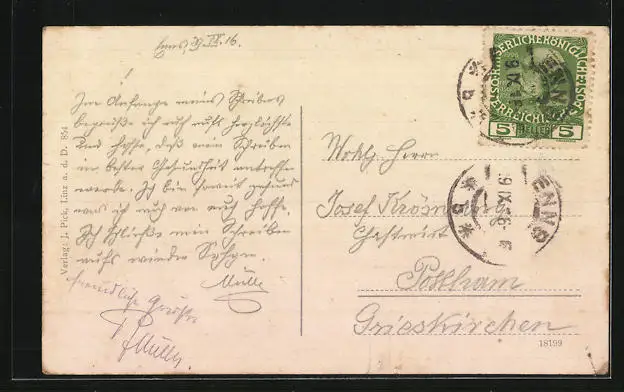 Enns, 16.
!
Im Anfange meines Schreibens
begrüße ich euch aufs Herzlichste
und hoffe, daß mein Schreiben
in bester Gesundheit antreffen
werde. Ich bin soweit gesund
was ich auch von euch hoffe.
Ich schließe mein Schreiben
aufs wieder Sehen.
Müller
freundliche Grüße
Müller
Verlag: J. Pick, Linz a. d. D. 854
KAISERLICHE KÖNIGL
ÖSTERREICHISCHE POST
5 HELLER 5
ENNS
XI
ENNS
XI
* b *
Wohlg. Herrn
Josef
Gastwirt
Pollham
Grieskirchen
18199